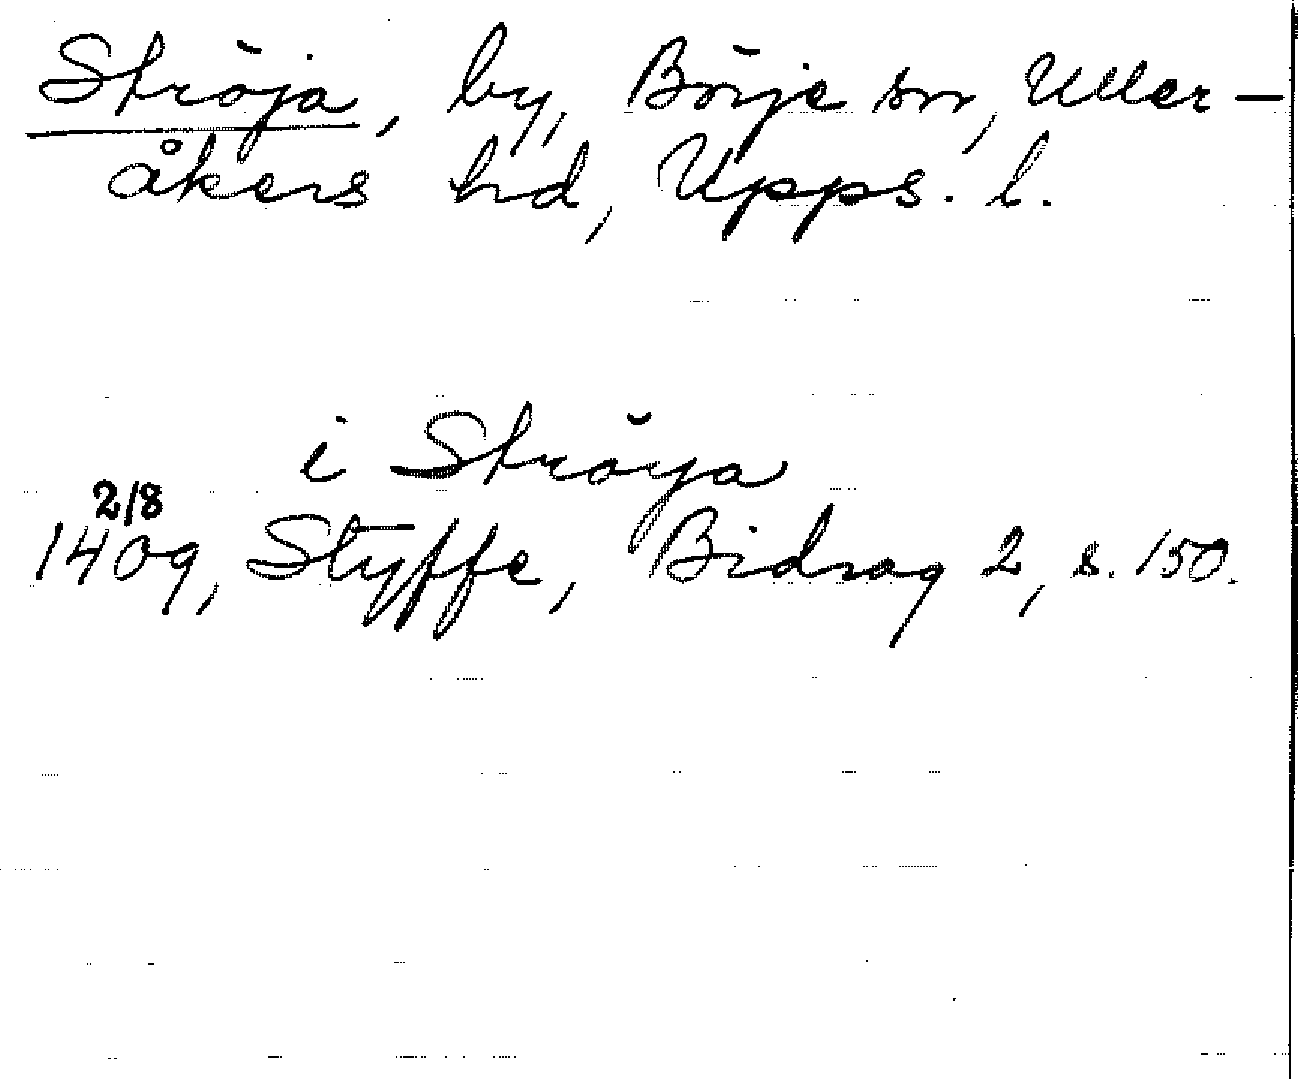 Ströja, by, Börje sn, Uller-
åkers hd, Upps. l.
i Ströya
2/8
1409, Styffe, Bidrag 2, s. 150.